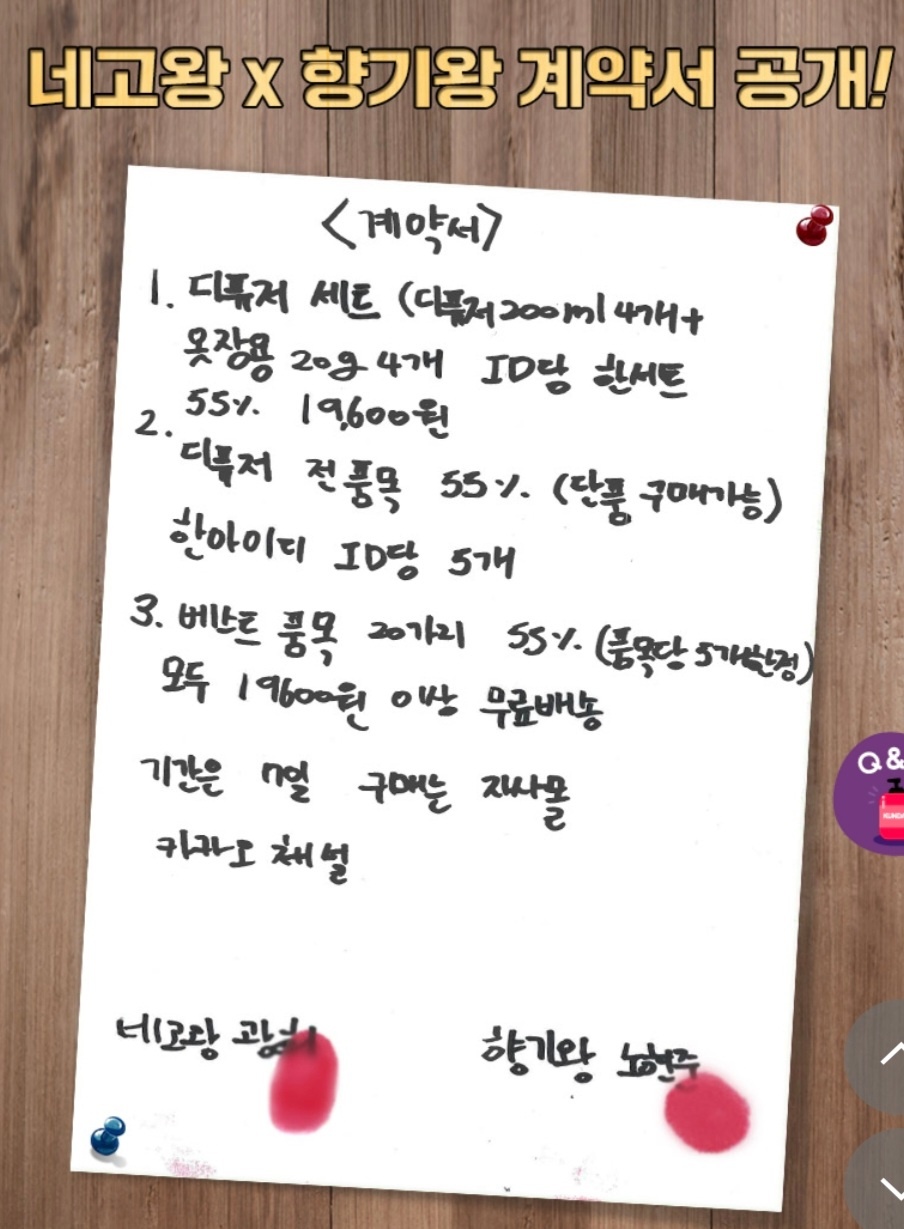 네고왕 x 향기왕 계약서 공개!
<계약서>
1. 디퓨저 세트 (디퓨저 200ml 4개+
옷장용 20g 4개 ID당 한세트
55% 19,600원
2. 디퓨저 전품목 55% (단품 구매가능)
한아이디 ID당 5개
3. 베스트 품목 20가지 55% (품목당 5개한정)
모두 19600원 이상 무료배송
기간은 7일 구매는 자사몰
카카오 채널
네고왕 광희
향기왕 노현주
Q &